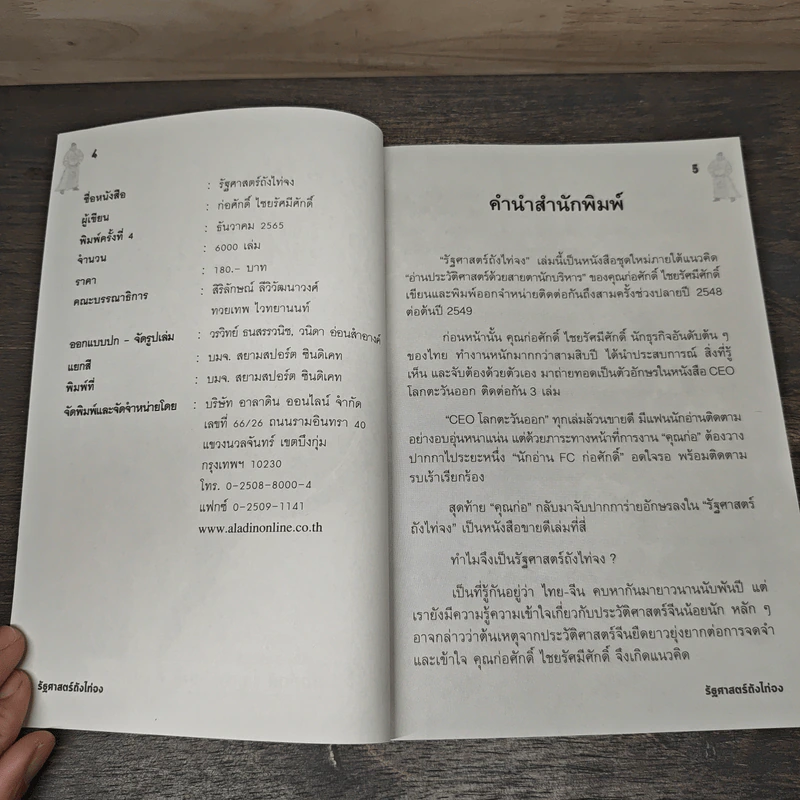 4
ชื่อหนังสือ : รัฐศาสตร์ถังไท่จง
ผู้เขียน : ก่อศักดิ์ ไชยรัศมีศักดิ์
พิมพ์ครั้งที่ 4 : ธันวาคม 2565
จำนวน : 6000 เล่ม
ราคา : 180.- บาท
คณะบรรณาธิการ : สิริลักษณ์ ลีวิวัฒนาวงศ์
ทวยเทพ ไวทยานนท์
ออกแบบปก - จัดรูปเล่ม : วรวิทย์ ธนสรรวนิช, วนิดา อ่อนสำอางค์
แยกสี : บมจ. สยามสปอร์ต ซินดิเคท
พิมพ์ที่ : บมจ. สยามสปอร์ต ซินดิเคท
จัดพิมพ์และจัดจำหน่ายโดย : บริษัท อาลาดิน ออนไลน์ จำกัด
เลขที่ 66/26 ถนนรามอินทรา 40
แขวงนวลจันทร์ เขตบึงกุ่ม
กรุงเทพฯ 10230
โทร. 0-2508-8000-4
แฟกซ์ 0-2509-1141
www.aladinonline.co.th
รัฐศาสตร์ถังไท่จง
5
คำนำสำนักพิมพ์
"รัฐศาสตร์ถังไท่จง" เล่มนี้เป็นหนังสือชุดใหม่ภายใต้แนวคิด
"อ่านประวัติศาสตร์ด้วยสายตานักบริหาร" ของคุณก่อศักดิ์ ไชยรัศมีศักดิ์
เขียนและพิมพ์ออกจำหน่ายติดต่อกันถึงสามครั้งช่วงปลายปี 2548
ต่อต้นปี 2549
ก่อนหน้านั้น คุณก่อศักดิ์ ไชยรัศมีศักดิ์ นักธุรกิจอันดับต้น ๆ
ของไทย ทำงานหนักมากกว่าสามสิบปี ได้นำประสบการณ์ สิ่งที่รู้
เห็น และจับต้องด้วยตัวเอง มาถ่ายทอดเป็นตัวอักษรในหนังสือ CEO
โลกตะวันออก ติดต่อกัน 3 เล่ม
"CEO โลกตะวันออก" ทุกเล่มล้วนขายดี มีแฟนนักอ่านติดตาม
อย่างอบอุ่นหนาแน่น แต่ด้วยภาระทางหน้าที่การงาน "คุณก่อ" ต้องวาง
ปากกาไประยะหนึ่ง "นักอ่าน FC ก่อศักดิ์" อดใจรอ พร้อมติดตาม
รบเร้าเรียกร้อง
สุดท้าย "คุณก่อ" กลับมาจับปากการ่ายอักษรลงใน "รัฐศาสตร์
ถังไท่จง" เป็นหนังสือขายดีเล่มที่สี่
ทำไมจึงเป็นรัฐศาสตร์ถังไท่จง ?
เป็นที่รู้กันอยู่ว่า ไทย-จีน คบหากันมายาวนานนับพันปี แต่
เรายังมีความรู้ความเข้าใจเกี่ยวกับประวัติศาสตร์จีนน้อยนัก หลัก ๆ
อาจกล่าวว่าต้นเหตุจากประวัติศาสตร์จีนยืดยาวยุ่งยากต่อการจดจำ
และเข้าใจ คุณก่อศักดิ์ ไชยรัศมีศักดิ์ จึงเกิดแนวคิด
รัฐศาสตร์ถังไท่จง